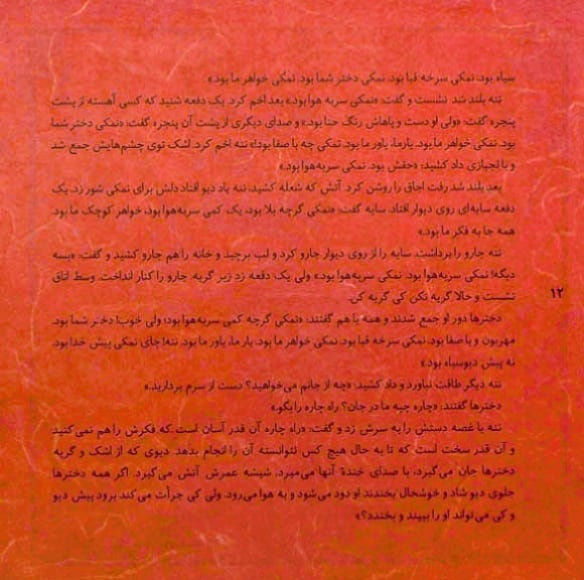 سیاه بود. نمکی سرخه قبا بود. نمکی دختر شما بود. نمکی خواهر ما بود.»
ننه بلند شد نشست و گفت: «نمکی سربه هوا بود.» بعد اخم کرد. یک دفعه شنید که کسی آهسته از پشت
پنجره گفت: «ولی او دست و پاهاش رنگ حنا بود.» و صدای دیگری از پشت آن پنجره گفت: «نمکی دختر شما
بود. نمکی خواهر ما بود. یار ما، یاور ما بود. نمکی چه با صفا بود!» ننه اخم کرد. اشک توی چشم‌هایش جمع شد
و با لجبازی داد کشید: «حقش بود. نمکی سربه‌هوا بود.»
بعد بلند شد رفت اجاق را روشن کرد. آتش که شعله کشید، ننه یاد دیو افتاد دلش برای نمکی شور زد. یک
دفعه سایه‌ای روی دیوار افتاد. سایه گفت: «نمکی گرچه بلا بود، یک کمی سربه‌هوا بود، خواهر کوچک ما بود.
همه جا به فکر ما بود.»
ننه جارو را برداشت. سایه را از روی دیوار جارو کرد و لب برچید و خانه را هم جارو کشید و گفت: «بسه
دیگه! نمکی سربه‌هوا بود. نمکی سربه‌هوا بود.» ولی یک دفعه زد زیر گریه. جارو را کنار انداخت. وسط اتاق
نشست و حالا گریه نکن کی گریه کن.
۱۲
دخترها دور او جمع شدند و همه با هم گفتند: «نمکی گرچه کمی سربه‌هوا بود؛ ولی خوب! دختر شما بود.
مهربون و با صفا بود. نمکی سرخه قبا بود. نمکی خواهر ما بود. یار ما، یاور ما بود. ننه! جای نمکی پیش خدا بود.
نه پیش دیو سیاه بود.»
ننه دیگر طاقت نیاورد و داد کشید: «چه از جانم می‌خواهید؟ دست از سرم بردارید.»
دخترها گفتند: «چاره چیه ما در جان؟ راه چاره را بگو.»
ننه با غصه دستش را به سرش زد و گفت: «راه چاره آن قدر آسان است که فکرش را هم نمی‌کنید
و آن قدر سخت است که تا به حال هیچ کس نتوانسته آن را انجام بدهد. دیوی که از اشک و گریه
دخترها جان می‌گیرد، با صدای خندهٔ آنها می‌میرد. شیشه عمرش آتش می‌گیرد. اگر همه دخترها
جلوی دیو شاد و خوشحال بخندند او دود می‌شود و به هوا می‌رود. ولی کی جرأت می‌کند برود پیش دیو
و کی می‌تواند او را ببیند و بخندد؟»